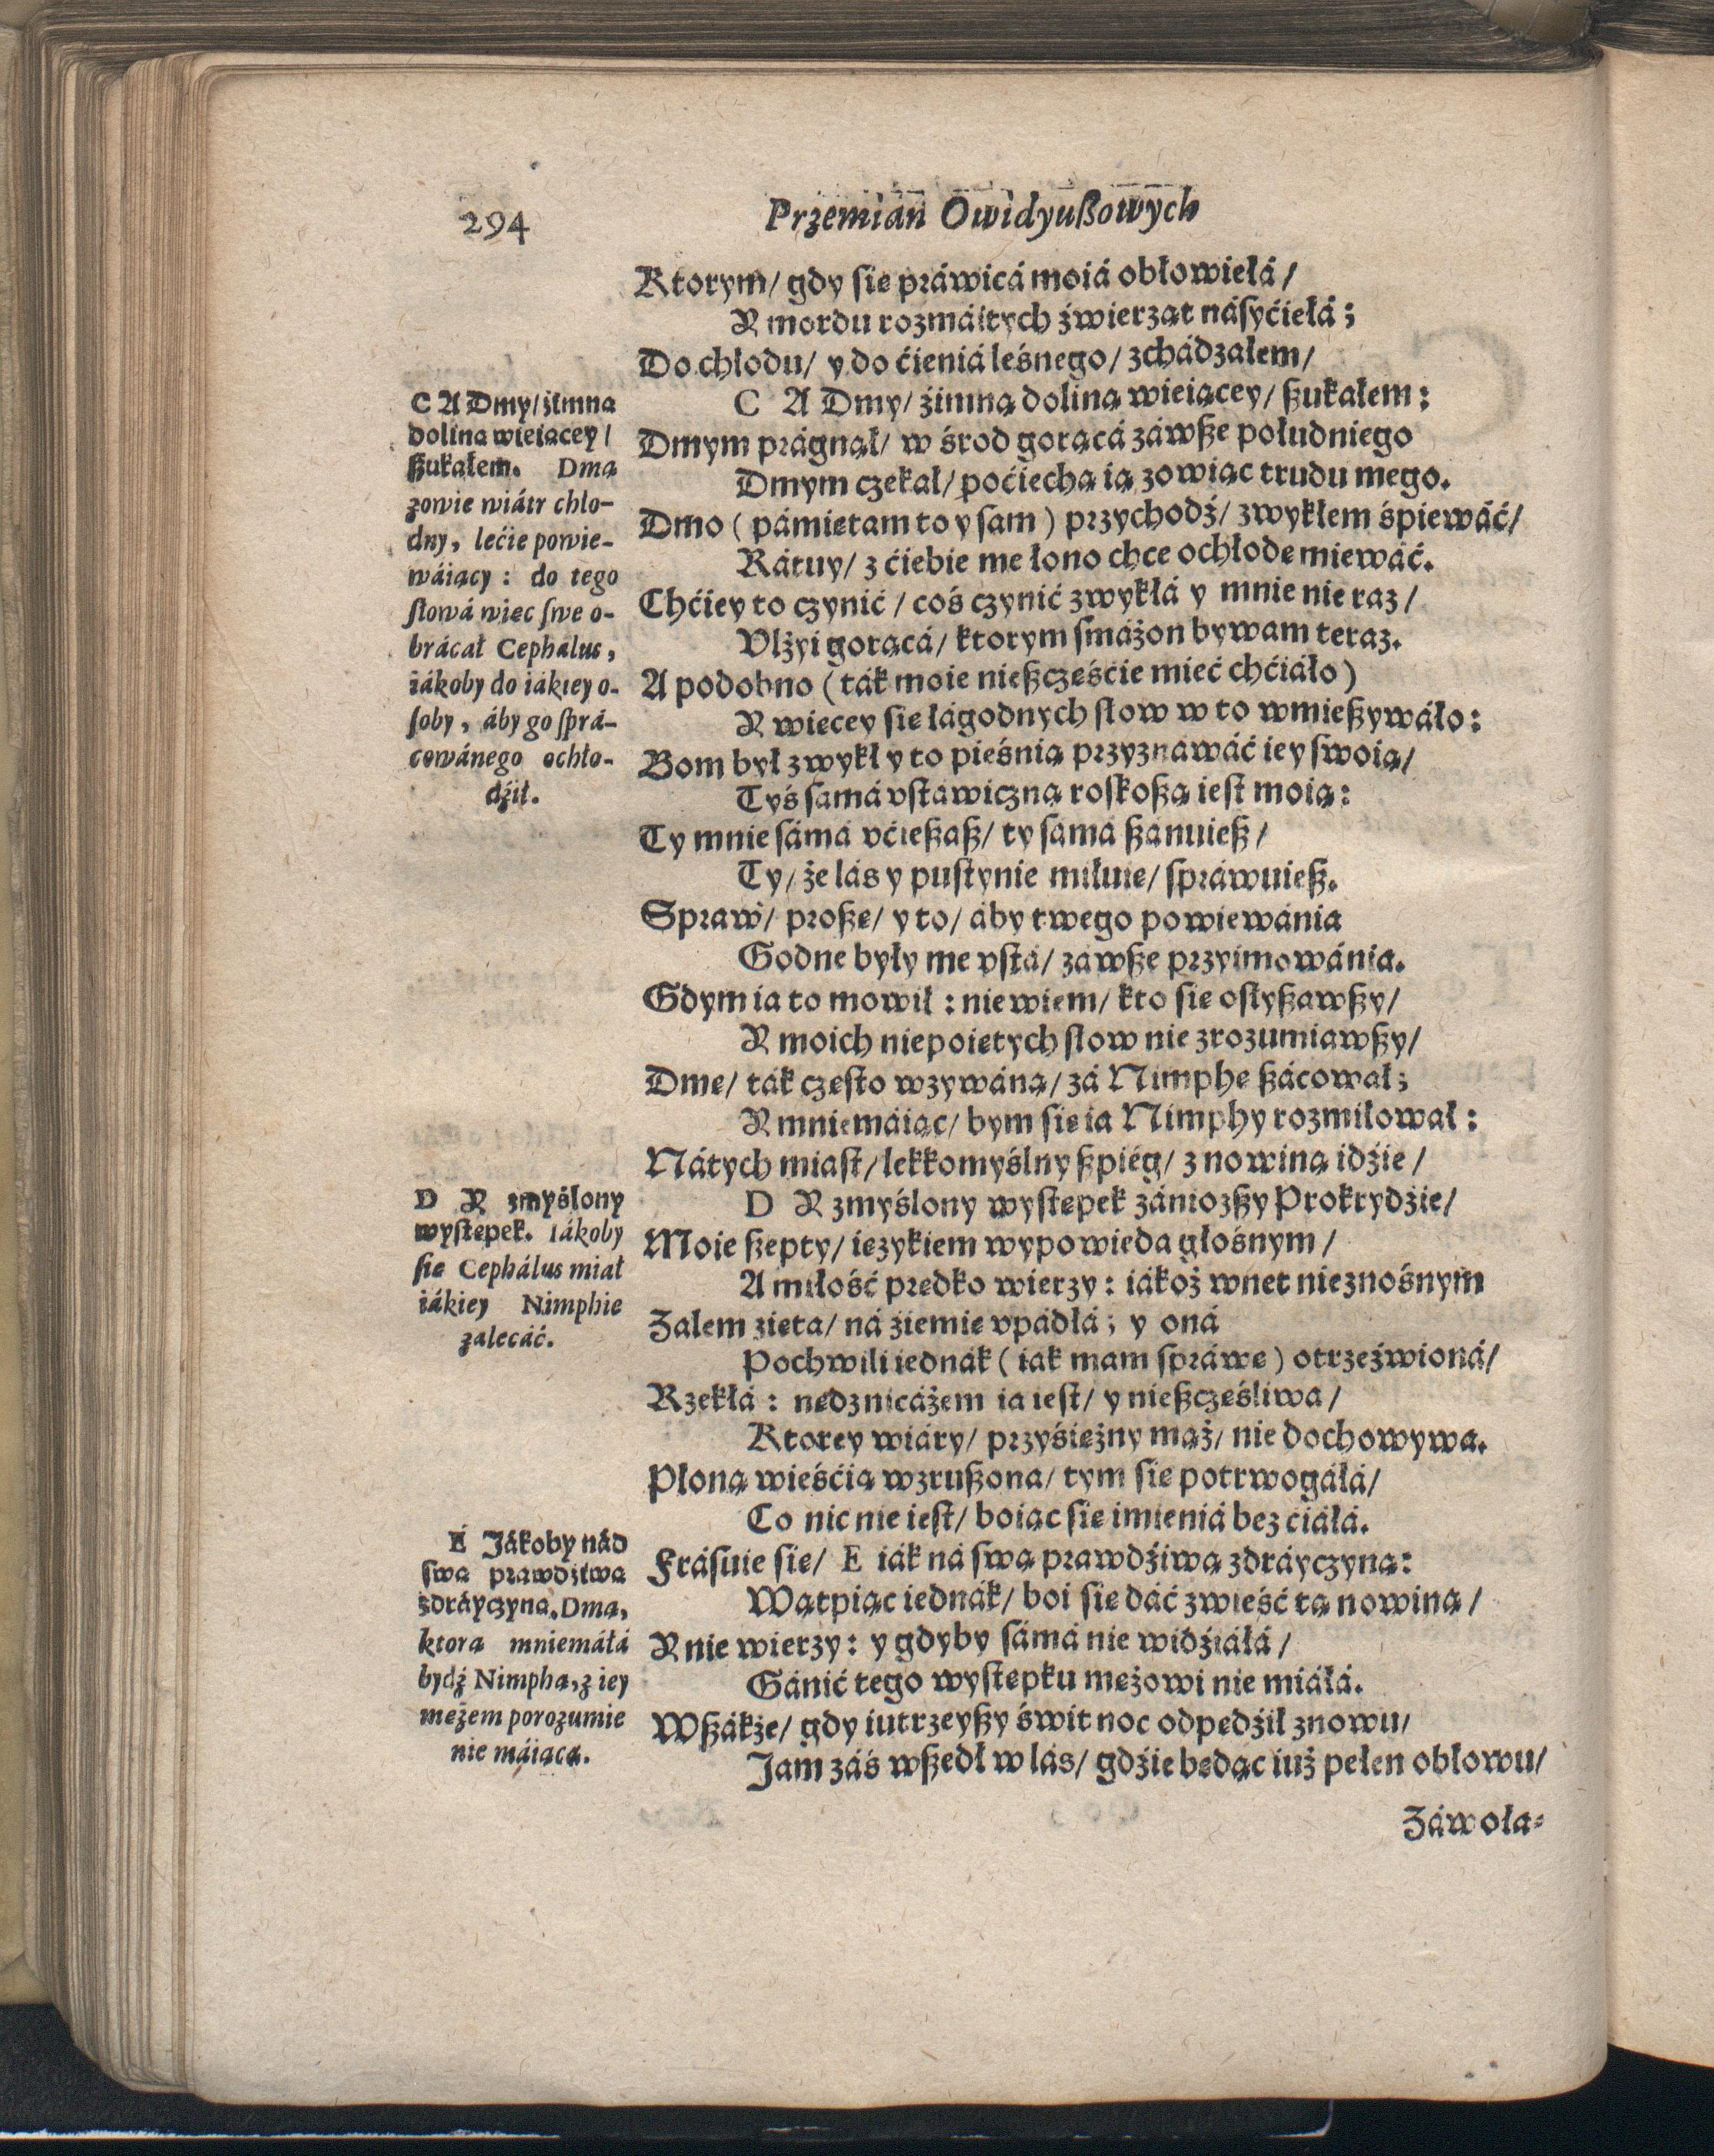 294
Przemian Owidyußowych
Ktorym/ gdy ſie práwicá moiá obłowiełá/
Y mordu rozmáitych źwierząt náſyćiełá;
Do chłodu/ y do ćieniá leśnego/ zchádzałem/
C A Dmy/ źimną doliną wieiącey/ ßukałem:
Dmym prágnął/ w środ gorącá záwße południego
Dmym czekał/ poćiechą ią zowiąc trudu mego.
Dmo (pámiętam to y ſam) przychodź/ zwykłem śpiewáć/
Rátuy/ z ćiebie me łono chce ochłodę miewáć.
Chćiey to czynić/ coś czynić zwykłá y mnie nie raz/
Vlżyi gorącá/ ktorym ſmáżon bywam teraz.
A podobno (ták moie nießczęśćie mieć chćiáło)
Y więcey ſie łágodnych ſłow w to wmießywáło:
Bom był zwykł y to pieśnią przyznawáć iey ſwoią/
Tyś ſamá vſtawiczną roſkoßą ieſt moią:
Ty mnie ſámá vćießaß/ ty ſamá ßanuieß/
Ty/ że lás y puſtynie miłuię/ ſpráwuieß.
Spraw/ proßę/ y to/ áby twego powiewánia
Godne były me vſtá/ záwße przyimowánia.
Gdym ia to mowił: nie wiem/ kto ſie oſłyßawßy/
Y moich niepoiętych ſłow nie zrozumiawßy/
Dmę/ ták często wzywáną/ zá Nimphę ßácował;
Y mniemáiąc/ bym ſie ia Nimphy rozmiłował:
Nátych miaſt/ lekkomyślny ßpiég/ z nowiną idźie/
D Y zmyślony wyſtępek zániozßy Prokrydźie/
Moie ßepty/ ięzykiem wypowieda głośnym/
A miłość prędko wierzy: iákoż wnet nieznośnym
Zalem zięta/ ná źiemię vpádłá; y oná
Po chwili iednák (iak mam ſpráwę) otrzeźwioná/
Rzekłá: nędznicáżem ia ieſt/ y nießczęśliwa/
Ktorey wiáry/ przyśiężny mąż/ nie dochowywa.
Płoną wieśćią wzrußona/ tym ſie potrwogáłá/
Co nic nie ieſt/ boiąc ſie imieniá bez ćiáłá.
Fráſuie ſie/ E iák ná ſwą prawdźiwą zdráyczyną:
Wątpiąc iednák/ boi ſie dáć zwieść tą nowiną/
Y nie wierzy: y gdyby ſámá nie widźiáłá/
Gánić tego wyſtępku mężowi nie miáłá.
Wßákże/ gdy iutrzeyßy świt noc odpędźił znowu/
Jam záś wßedł w lás/ gdźie będąc iuż pełen obłowu/
Záwoła-
C A Dmy/ źimną
doliną wieiącey/
ßukałem. Dmą
zowie wiátr chło-
dny, lećie powie-
wáiący: do tego
ſłowá więc ſwe o-
brácał Cephalus,
iákoby do iákiey o-
ſoby, áby go ſprá-
cowánego ochło-
dźił.
D Y zmyślony
wyſtępek. Iákoby
ſie Cephálus miał
iákiey Nimphie
zalecáć.
E Jákoby nád
ſwą prawdźiwą
zdráyczyną. Dmą,
ktora mniemáłá
bydź Nimphą, z iey
mężem porozumie
nie máiącą.